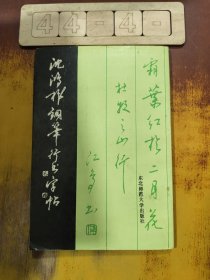 44-4-9
霜葉红於二月花
杜牧之山行
江鸟书
沈鸿根钢笔行书字帖
东北师范大学出版社